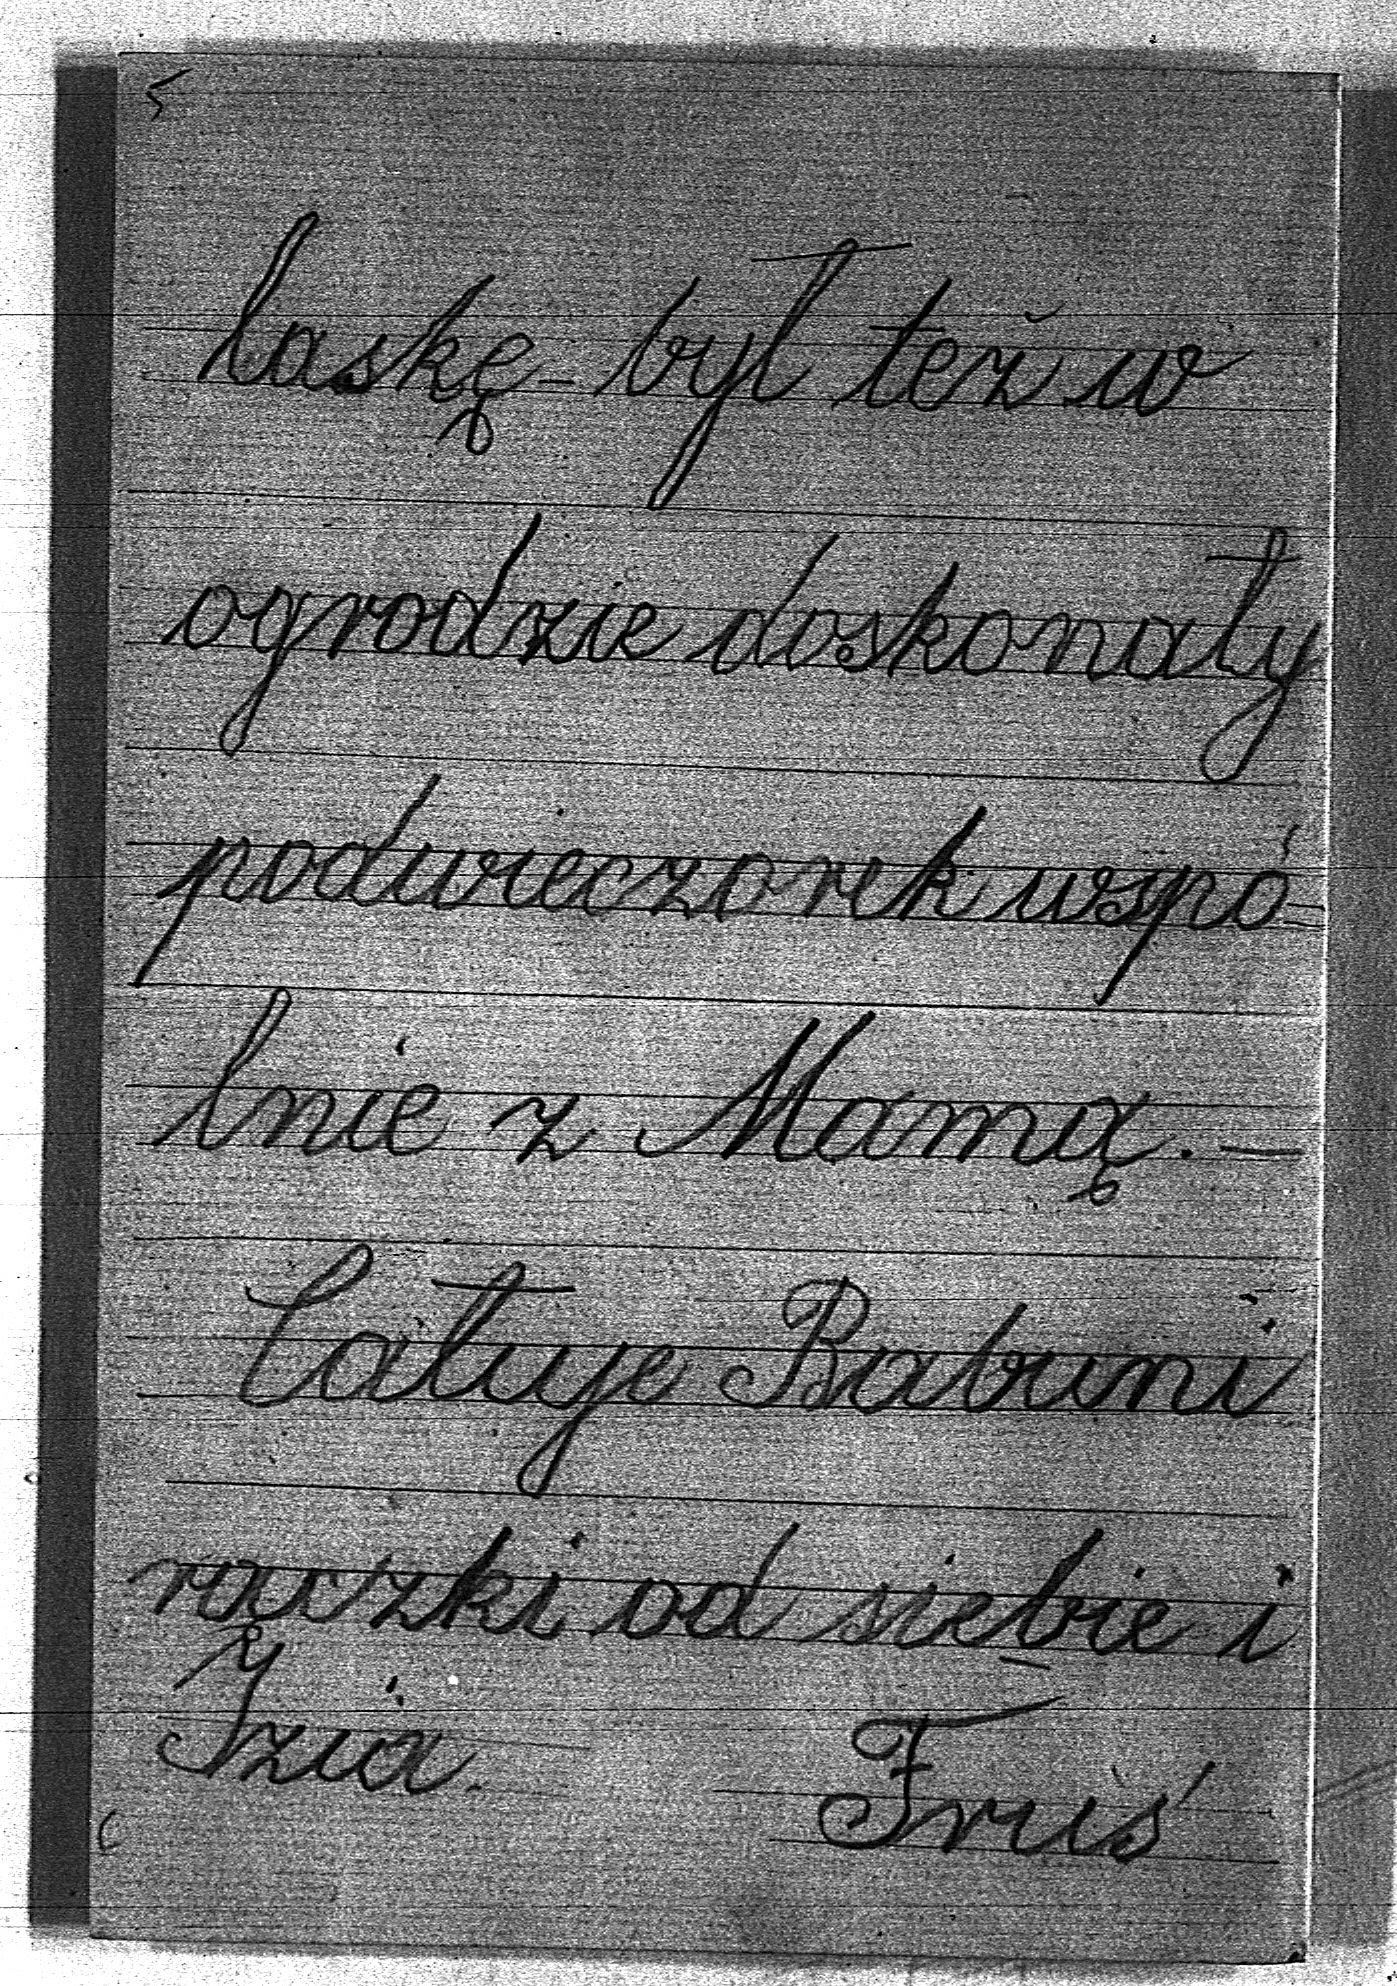 5
laskę - był też w
ogrodzie doskonały
podwieczorek wspó-
lnie z Mamą. —
Całuje Babuni
rączki od siebie i
Izia. Fruś